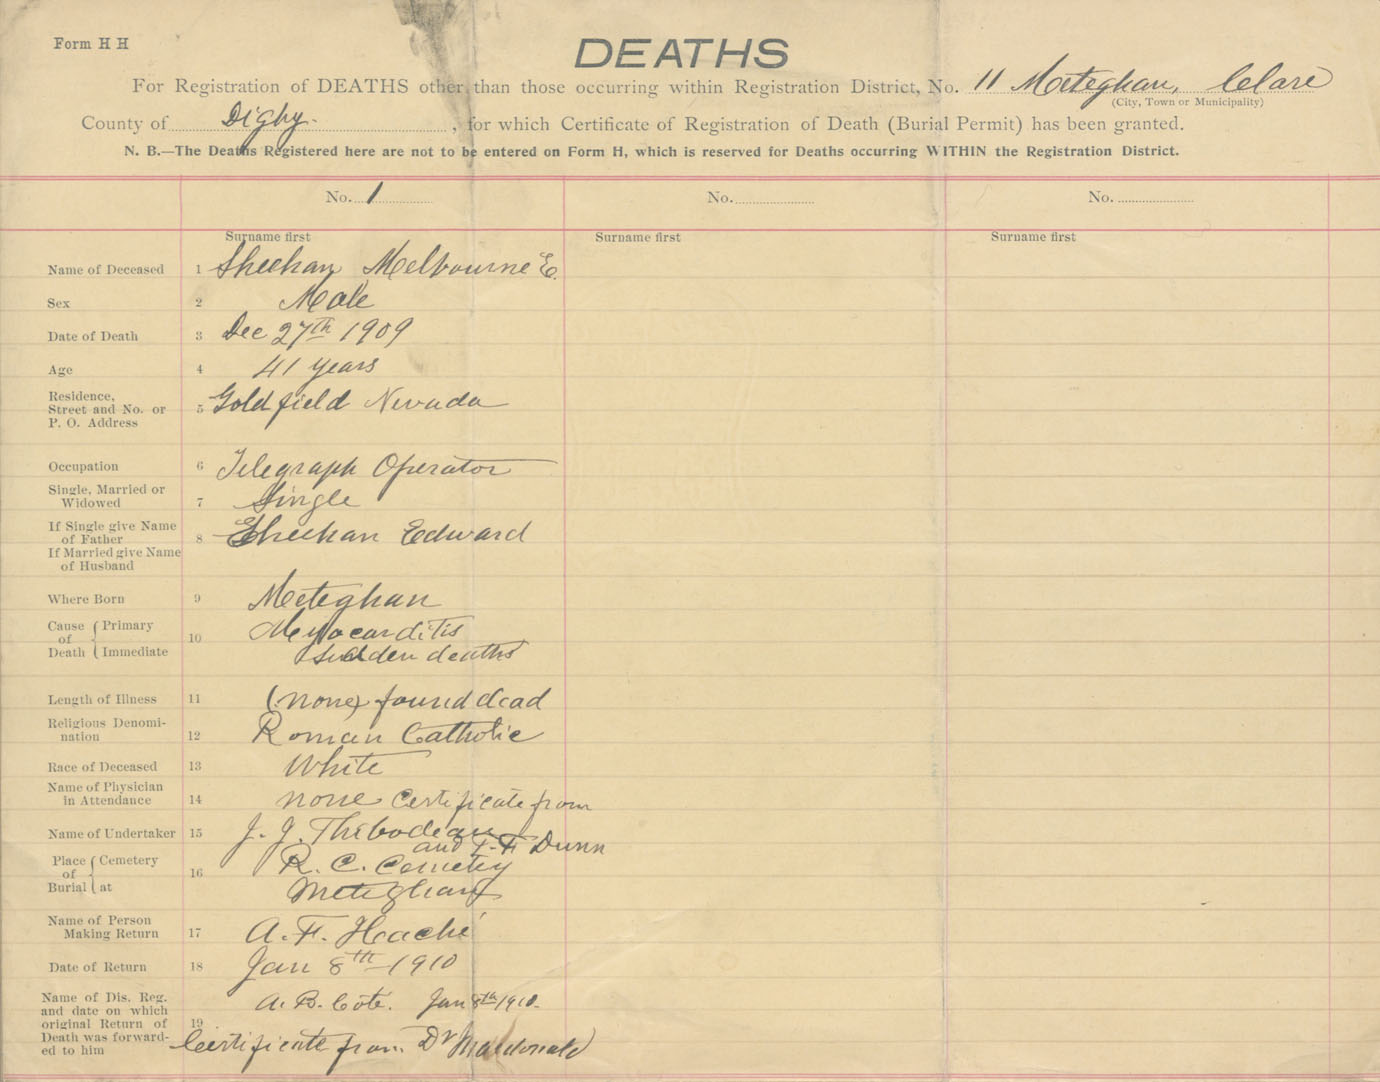 Form H H
DEATHS
For Registration of DEATHS other than those occurring within Registration District, No. 11 Meteghan, Clare
(City, Town or Municipality)
County of Digby. , for which Certificate of Registration of Death (Burial Permit) has been granted.
N. B.—The Deaths Registered here are not to be entered on Form H, which is reserved for Deaths occurring WITHIN the Registration District.
No. 1 No. No.
Surname first Surname first Surname first
Name of Deceased 1 Sheehan Melbourne E.
Sex 2 Male
Date of Death 3 Dec 27th 1909
Age 4 41 years
Residence,
Street and No. or 5 Goldfield Nevada
P. O. Address
Occupation 6 Telegraph Operator
Single, Married or
Widowed 7 Single
If Single give Name
of Father 8 Sheehan Edward
If Married give Name
of Husband
Where Born 9 Meteghan
Cause Primary Myocarditis
of 10
Death Immediate Sudden deaths
Length of Illness 11 (none) found dead
Religious Denomi-
nation 12 Roman Catholic
Race of Deceased 13 White
Name of Physician
in Attendance 14 none Certificate from
Name of Undertaker 15 J. J. Thibodeau
and T. F. Dunn
Place Cemetery R. C. Cemetry
of 16
Burial at Meteghan
Name of Person
Making Return 17 A. F. Haché
Date of Return 18 Jan 8th 1910
Name of Dis. Reg. A. B. Cote. Jan 8th 1910.
and date on which
original Return of 19
Death was forward- Certificate from Dr Macdonald
ed to him